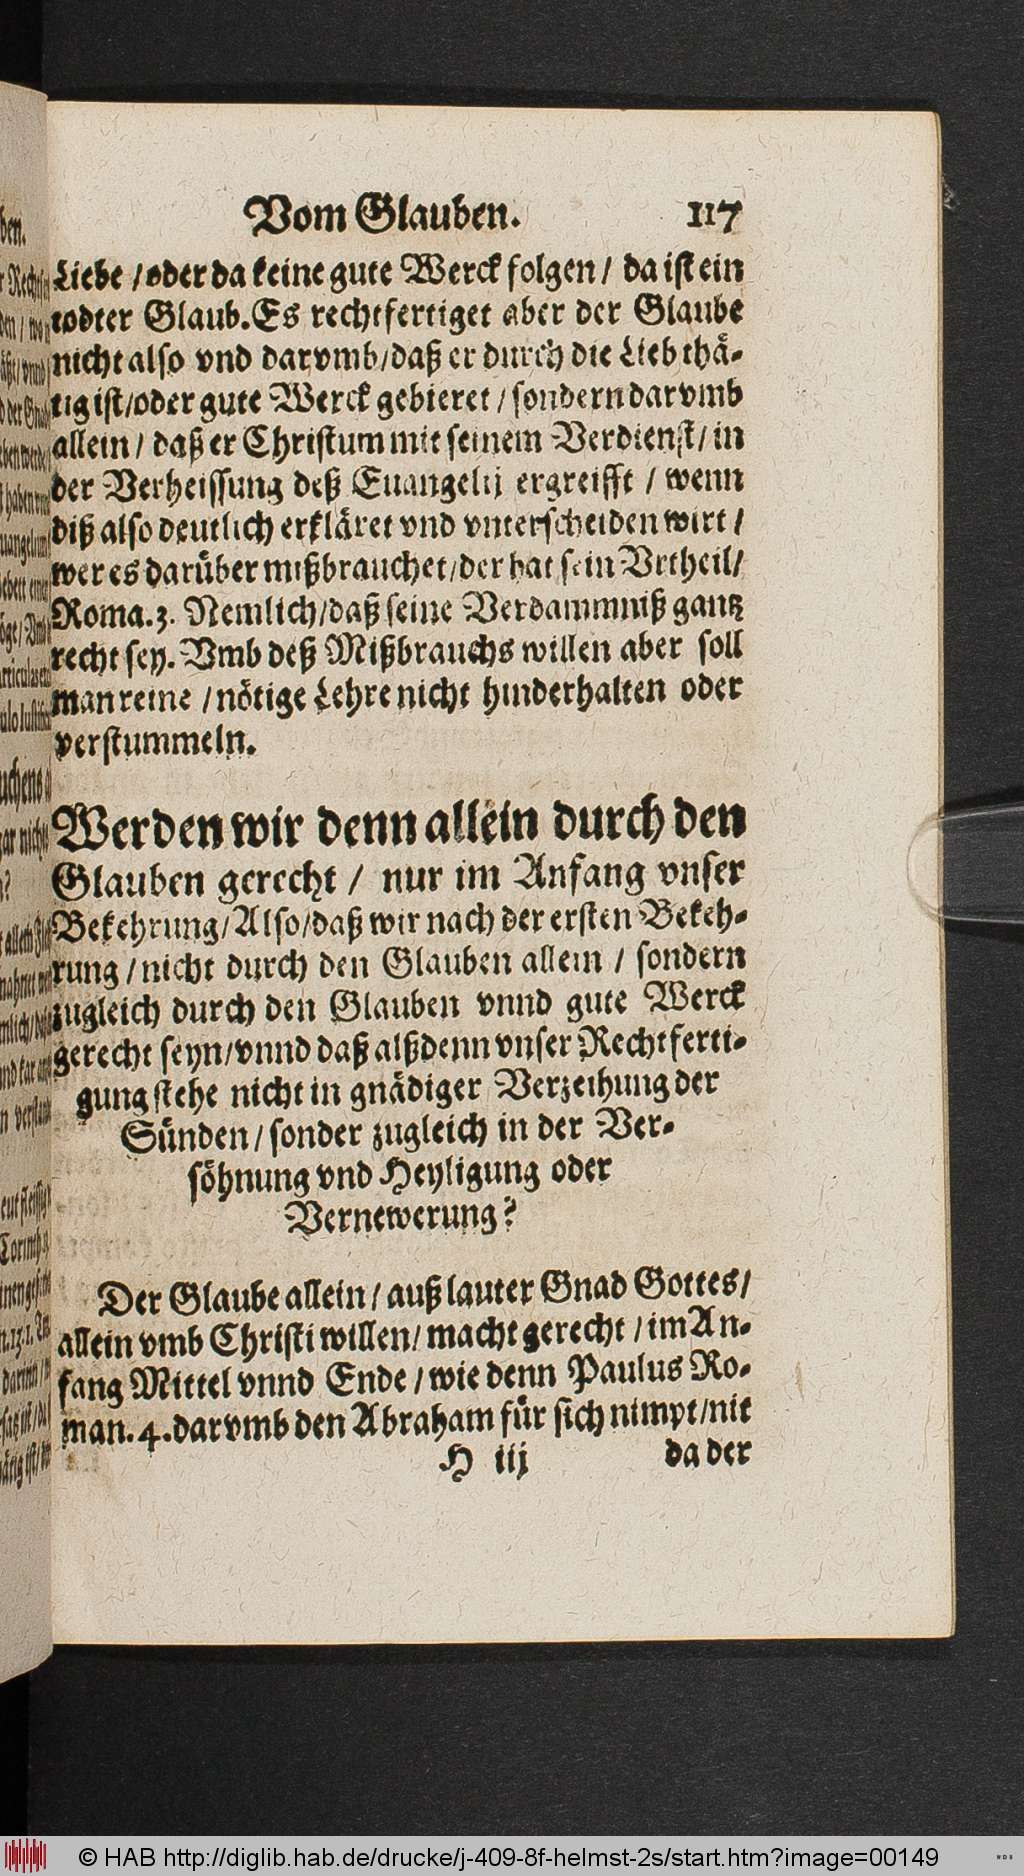 Vom Glauben. 117
Liebe / oder da keine gute Werck folgen / da ist ein
todter Glaub. Es rechtfertiget aber der Glaube
nicht also vnd darvmb / daß er durch die Lieb thä-
tig ist / oder gute Werck gebieret / sondern darvmb
allein / daß er Christum mit seinem Verdienst / in
der Verheissung deß Euangelij ergreifft / wenn
diß also deutlich erkläret vnd vnterscheiden wirt /
wer es darüber mißbrauchet / der hat sein Vrtheil /
Roma. 3. Nemlich / daß seine Verdammniß gantz
recht sey. Vmb deß Mißbrauchs willen aber soll
man reine / nötige Lehre nicht hinderhalten oder
verstummeln.
Werden wir denn allein durch den
Glauben gerecht / nur im Anfang vnser
Bekehrung / Also / daß wir nach der ersten Bekeh-
rung / nicht durch den Glauben allein / sondern
zugleich durch den Glauben vnnd gute Werck
gerecht seyn / vnnd daß alßdenn vnser Rechtferti-
gung stehe nicht in gnädiger Verzeihung der
Sünden / sonder zugleich in der Ver-
söhnung vnd Heyligung oder
Vernewerung?
Der Glaube allein / auß lauter Gnad Gottes /
allein vmb Christi willen / macht gerecht / im An-
fang Mittel vnnd Ende / wie denn Paulus Ro-
man. 4. darvmb den Abraham für sich nimpt / nit
H iij da der
© HAB http://diglib.hab.de/drucke/j-409-8f-helmst-2s/start.htm?image=00149